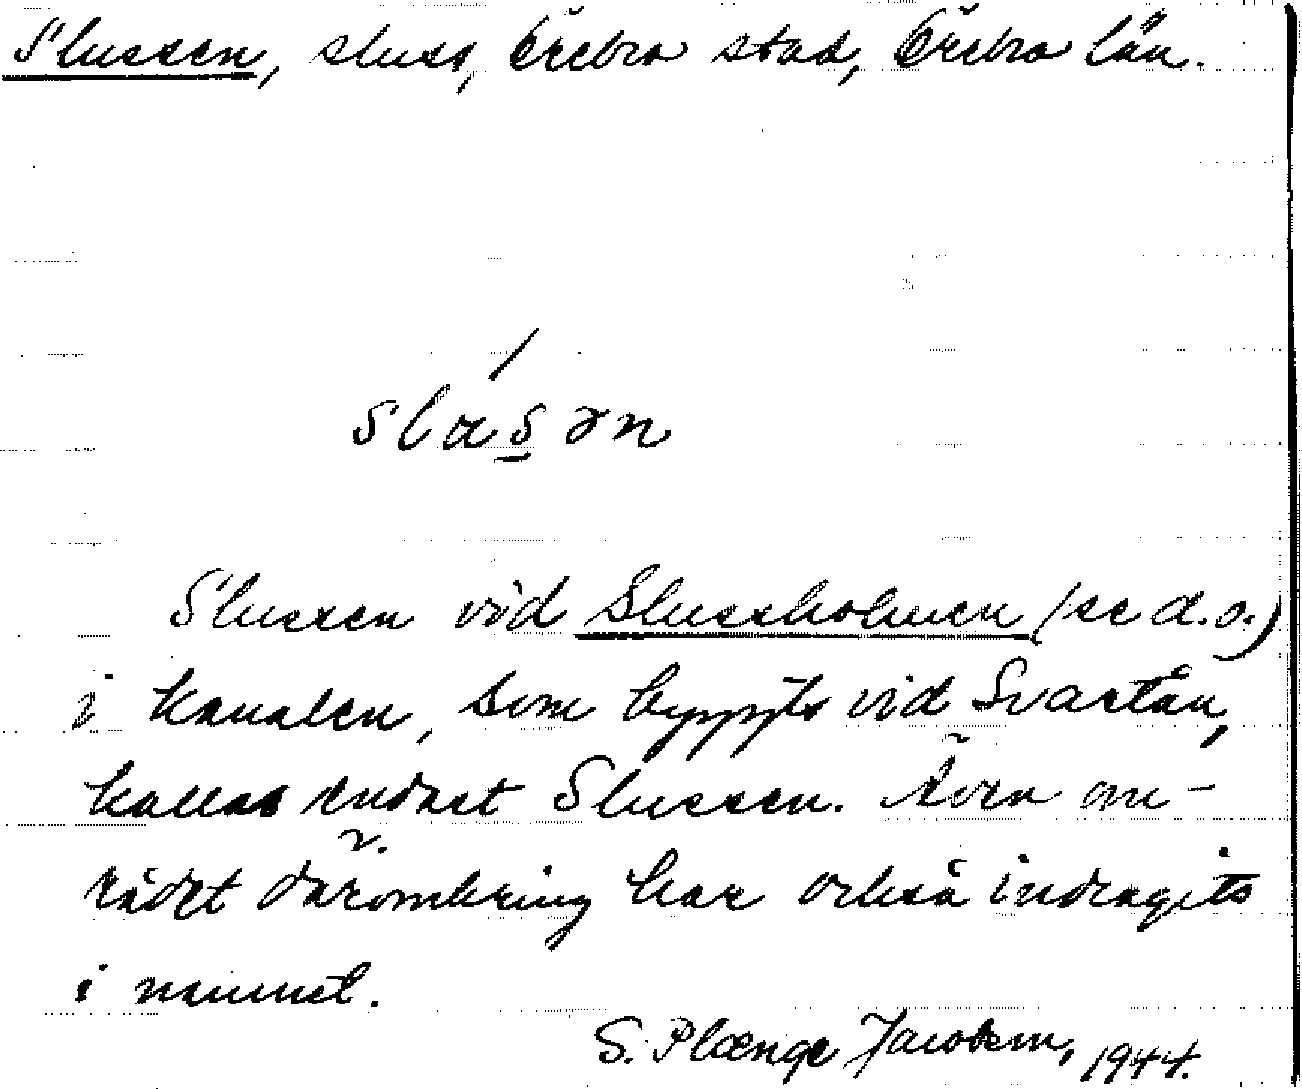 Slussen, sluss, Örebro stad, Örebro län.
slɑ́s̱ən
Slussen vid Slussholmen (se d.o.)
i kanalen, som byggts vid Svartån,
kallas endast Slussen. Även om-
rådet däromkring har också indragits
i namnet.
S. Plænge Jacobson, 1944.